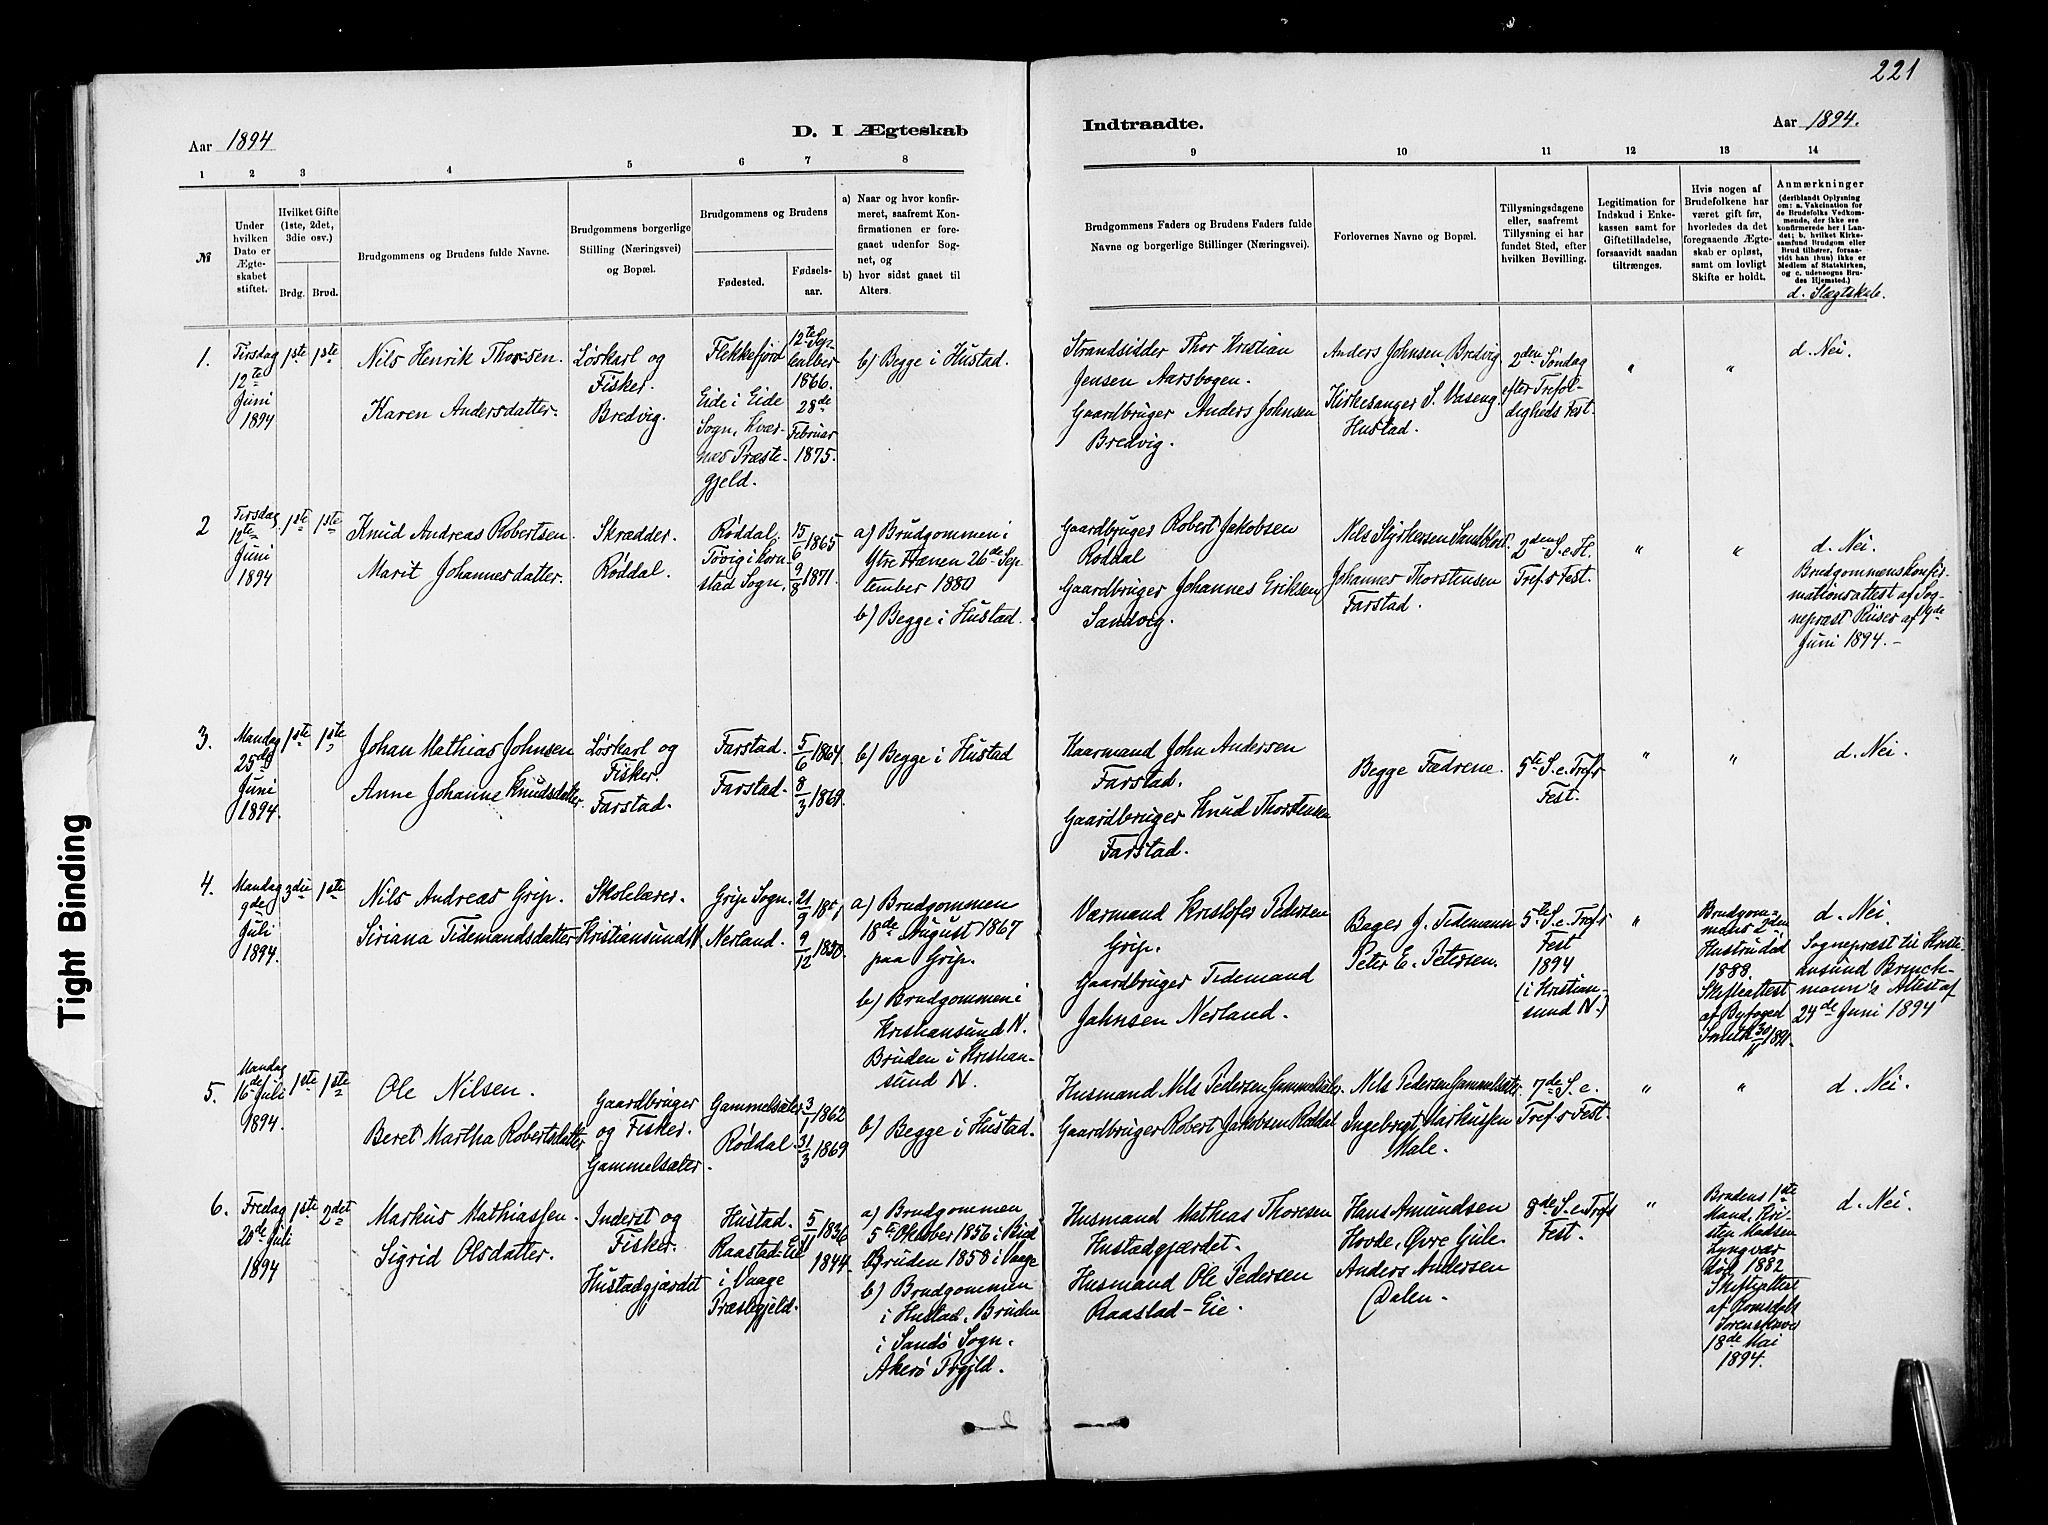 221
Aar 1894
D. I Ægteskab
Indtraadte.
Aar 1894.
1 2 3 4 5 6 7 8
9 10 11 12 13 14
№
Under
hvilken
Dato er
Ægte-
skabet
stiftet.
Hvilket Gifte
(1ste, 2det,
3die osv.)
Brdg. Brud.
Brudgommens og Brudens fulde Navne.
Brudgommens borgerlige
Stilling (Næringsvei)
og Bopæl.
Brudgommens og Brudens
Fødested.
Fødsels-
aar.
a) Naar og hvor konfir-
meret, saafremt Kon-
firmationen er fore-
gaaet udenfor Sog-
net, og
b) hvor sidst gaaet til
Alters.
Brudgommens Faders og Brudens Faders fulde
Navne og borgerlige Stillinger (Næringsvei).
Forlovernes Navne og Bopæl.
Tillysningsdagene
eller, saafremt
Tillysning ei har
fundet Sted, efter
hvilken Bevilling.
Legitimation for
Indskud i Enke-
kassen samt for
Giftetilladelse,
forsaavidt saadan
tiltrænges.
Hvis nogen af
Brudefolkene har
været gift før,
hvorledes da det
foregaaende Ægte-
skab er opløst,
samt om lovligt
Skifte er holdt.
Anmærkninger
(deriblandt Oplysning
om: a. Vakcination for
de Brudefolks Vedkom-
mende, der ikke ere
konfirmerede her i Lan-
det; b. hvilket Kirke-
samfund Brudgom eller
Brud tilhører, forsaa-
vidt han (hun) ikke er
Medlem af Statskirken,
og c. udensogns Bru-
des Hjemsted.)
d. Slægtskab.
1.
Tirsdag
12te
Juni
1894
1ste 1ste
Nils Henrik Thorsen.
Karen Andersdatter.
Løskarl og
Fisker.
Bredvig.
Flekkefjord
Eide i Eide
Sogn, Kvær-
nes Præste-
gjeld.
12te Sep-
tember
1866.
28de
Februar
1875.
b) Begge i Hustad.
Strandsidder Thor Kristian
Jensen Aarsbogen.
Gaardbruger Anders Johnsen
Bredvig.
Anders Johnsen Bredvig
Kirkesanger S. Vaseng
Hustad.
2den Søndag
efter Trefol-
digheds Fest.
"
"
d. Nei.
2
Tirsdag
12te
Juni
1894
1ste 1ste
Knud Andreas Robertsen
Marit Johannesdatter.
Skrædder.
Røddal.
Røddal.
Tøvig i Korn-
stad Sogn.
15/6 1865
9/8 1871.
a) Brudgommen i
Ytre Hanen 26de Sep-
tember 1880
b) Begge i Hustad.
Gaardbruger Robert Jakobsen
Røddal
Gaardbruger Johannes Eriksen
Sandvig.
Nels Styrkersen Sandblost.
Johannes Thorstensen
Farstad.
2den S. e. H.
Tref.s Fest.
"
"
d. Nei.
Brudgommens konfir-
mationsattest af Sog-
nepræst Riiser af 9de
Juni 1894.-
3.
Mandag
25de
Juni
1894.
1ste 1ste
Johan Mathias Johnsen
Anne Johanne Knudsdatter.
Løskarl og
Fisker.
Farstad.
Farstad.
Farstad.
5/6 1864
8/3 1869.
b) Begge i Hustad
Kaarmand John Andersen
Farstad.
Gaardbruger Knud Thorstensen
Farstad.
Begge Fædrene.
5te S. e. Tref.s
Fest.
"
"
d. Nei.
4.
Mandag
9de
Juli
1894.
3die 1ste
Nils Andreas Grip.
Siriana Tidemandsdatter
Skolelærer.
Kristiansund N.
Grip Sogn.
Nerland.
21/9
9/12 1850.
a) Brudgommen
18de August 1867
paa Grip.
b) Brudgommen i
Kristiansund N.
Bruden i Kristian-
sund N.
Værmand Kristofer Pedersen
Grip.
Gaardbruger Tidemand
Johnsen Nerland.
Bager J. Tidemann
Peter E. Petersen.
5te S. e. Tref.s
Fest
1894
(i Kristian-
sund N.)
"
Brudgom-
mens 2den
Hustru død
1888.
Skifteattest
af Byfoged
Smith 30/11 1891.
d. Nei.
Sognepræst til Kristi-
ansund Brinch-
mann's Attest af
24de Juni 1894
5.
Mandag
16de Juli
1894.
1ste 1ste
Ole Nilsen.
Beret Martha Robertsdatter
Gaardbruger
og Fisker.
Gammelsæter.
Gammelsæter
Røddal.
3/1 1862
31/3 1869
b) Begge i Hustad.
Husmand Nils Pedersen Gammelsæter.
Gaardbruger Robert Jakobsen Røddal
Nels Pedersen Gammelsæter.
Ingebrigt Markussen
Male.
7de S. e.
Tref.s Fest.
"
"
d. Nei.
6.
Fredag
20de Juli
1894
1ste 2det
Markus Mathiassen.
Sigrid Olsdatter.
Inderst og
Fisker.
Hustadgjærdet
Hustad.
Raastad-Eie
i Vaage
Præstegjeld.
5/11 1836
1844.
a) Brudgommen
5te Oktober 1856 i Bud
Bruden 1858 i Vaage
b) Brudgommen
i Hustad. Bruden
i Sandø Sogn.
Akerø Prgjld.
Husmand Mathias Thoresen
Hustadgjærdet.
Husmand Ole Pedersen
Raastad-Eie.
Hans Amundsen
Hovde, Øvre Gule.
Anders Andersen
Dalen.
8de S. e. Tref.s
Fest.
"
Brudens 1ste
Mand, Kri-
sten Madsen
Lyngvær
død 1882
Skifteattest
af Romsdals
Sorenskriver
18de Mai
1894.
d. Nei
Tight Binding